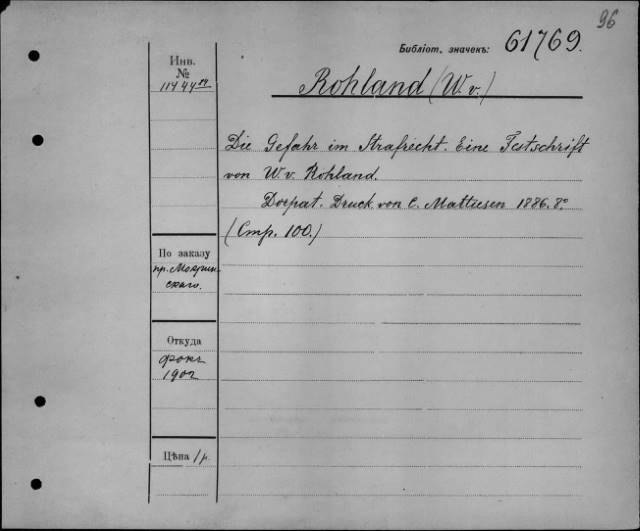 96
Библіот. значекъ: 61769.
Инв.
№
Rohland (W. v.)
Die Gefahr im Strafrecht. Eine Festschrift
von W. v. Rohland.
Dorpat. Druck von C. Mattiesen 1886. 8°
(Стр. 100.)
По заказу
пр. Мокрин-
скаго.
Откуда
Фокъ
1902
Цѣна 1 р.